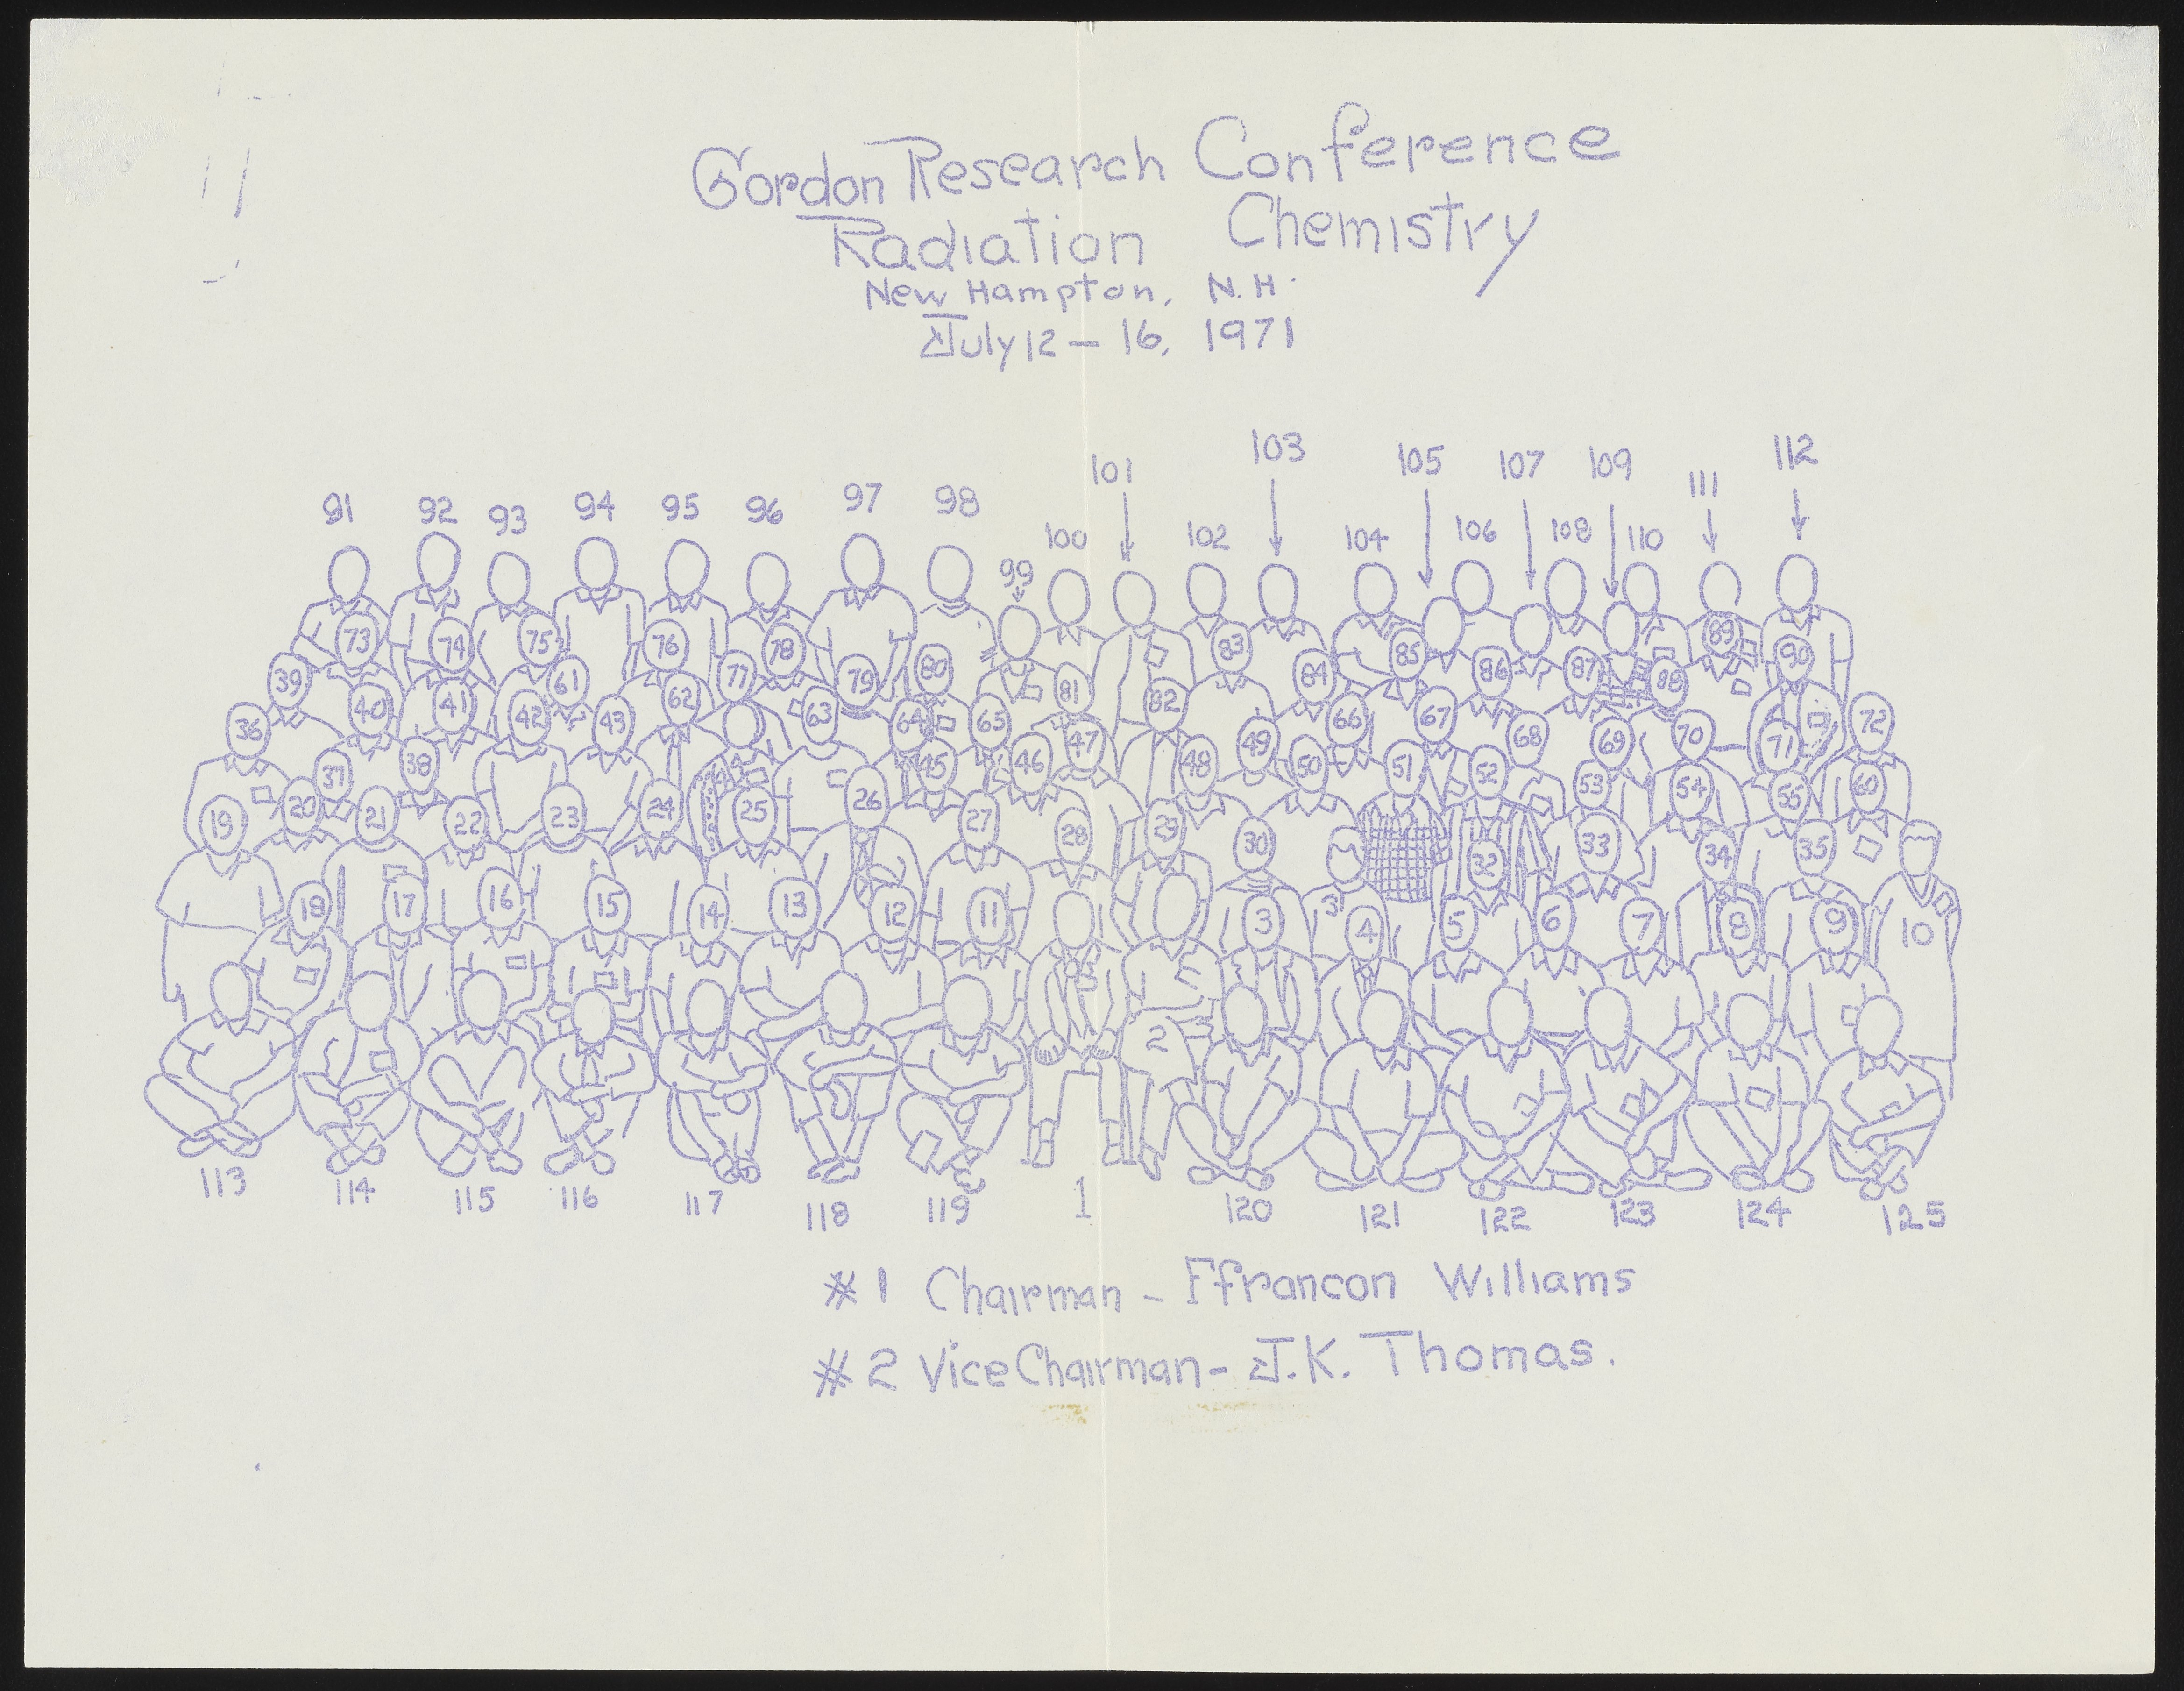 Gordon Research Conference
Radiation Chemistry
New Hampton, N.H.
July 12 - 16, 1971
103
101 105 107 109 111 112
91 92 93 94 95 96 97 98
99 100 102 104 106 108 110
73 74 75 76 77 78 79 80 81 82 83 84 85 86 87 88 89 90
39 40 41 42 61 43 62 63 64 65 66 67 68 69 70 71 72
36 37 38 44 45 46 47 48 49 50 51 52 53 54 55 60
19 20 21 22 23 24 25 26 27 28 29 30 31 32 33 34 35
18 17 16 15 14 13 12 11 3 4 5 6 7 8 9 10
2
113 114 115 116 117 118 119 1 120 121 122 123 124 125
# 1 Chairman - Ffrancon Williams
# 2 Vice Chairman - J.K. Thomas.